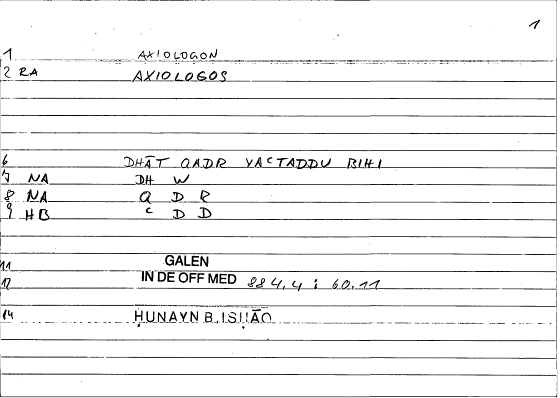 1
1 AXIOLOGON
2 RA AXIOLOGOS
6 DHĀT QADR YAᶜTADDU BIHI
7 NA DH W
8 NA Q D R
9 HB ᶜ D D
11 GALEN
12 IN DE OFF MED 884,4 : 60.11
14 ḤUNAYN B. ISḤĀQ